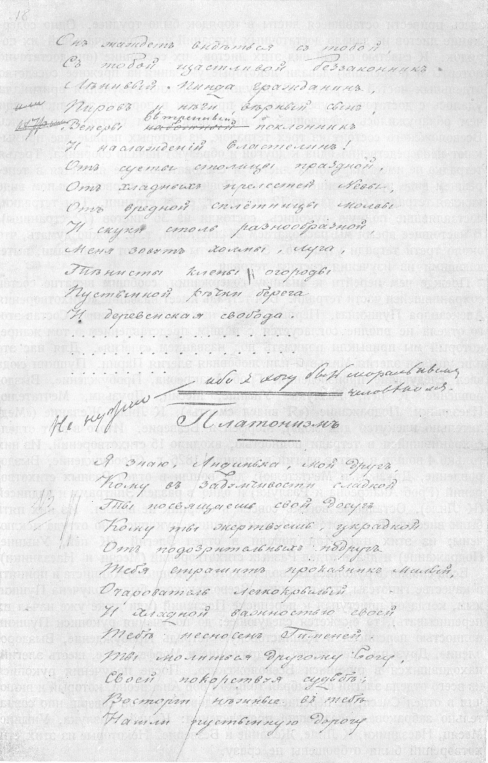 Съ надеждой видѣться съ тобой,
Съ тобой щастливой беззаконникъ.
Лѣнивый Пинда гражданинъ,
Пировъ и нѣги вѣрный сынъ,
Венеры набожный поклонникъ
И наслажденій властелинъ!
Отъ суеты столицы праздной,
Отъ хладныхъ прелестей Невы,
Отъ вредной сплетницы молвы
И скуки столь разнообразной,
Меня зовутъ холмы, луга,
Тѣнисты клены огороды
Пустынной рѣчки берега
И деревенская свобода.
Не нужно — ибо я хочу быть моральнымъ
человѣкомъ.
Платонизмъ
Я знаю, Лидинька, мой другъ,
Кому въ задумчивости сладкой
Ты посвящаешь свой досугъ
Кому ты жертвуешь, украдкой
Отъ подозрительныхъ подругъ.
Тебя страшитъ проказникъ милый,
Очарователь легкокрылый
И хладной важностью своей
Тебѣ несносенъ Гименей.
Ты молишься другому Богу,
Своей покорствуя судьбѣ;
Восторги нѣжные въ тебѣ
Нашли пустынную дорогу